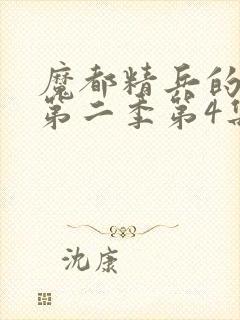 魔都精兵的
第二季第4集
沈康